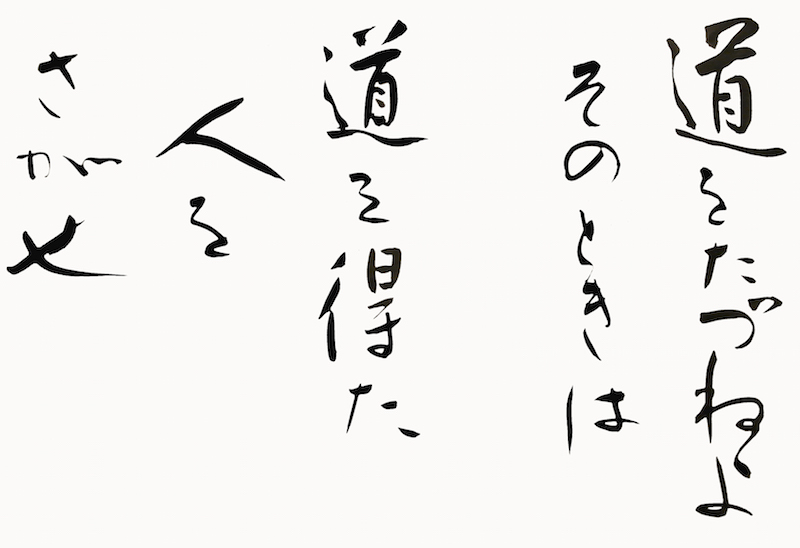 道をたづねよ
そのときは
道を得た
人を
さがせ